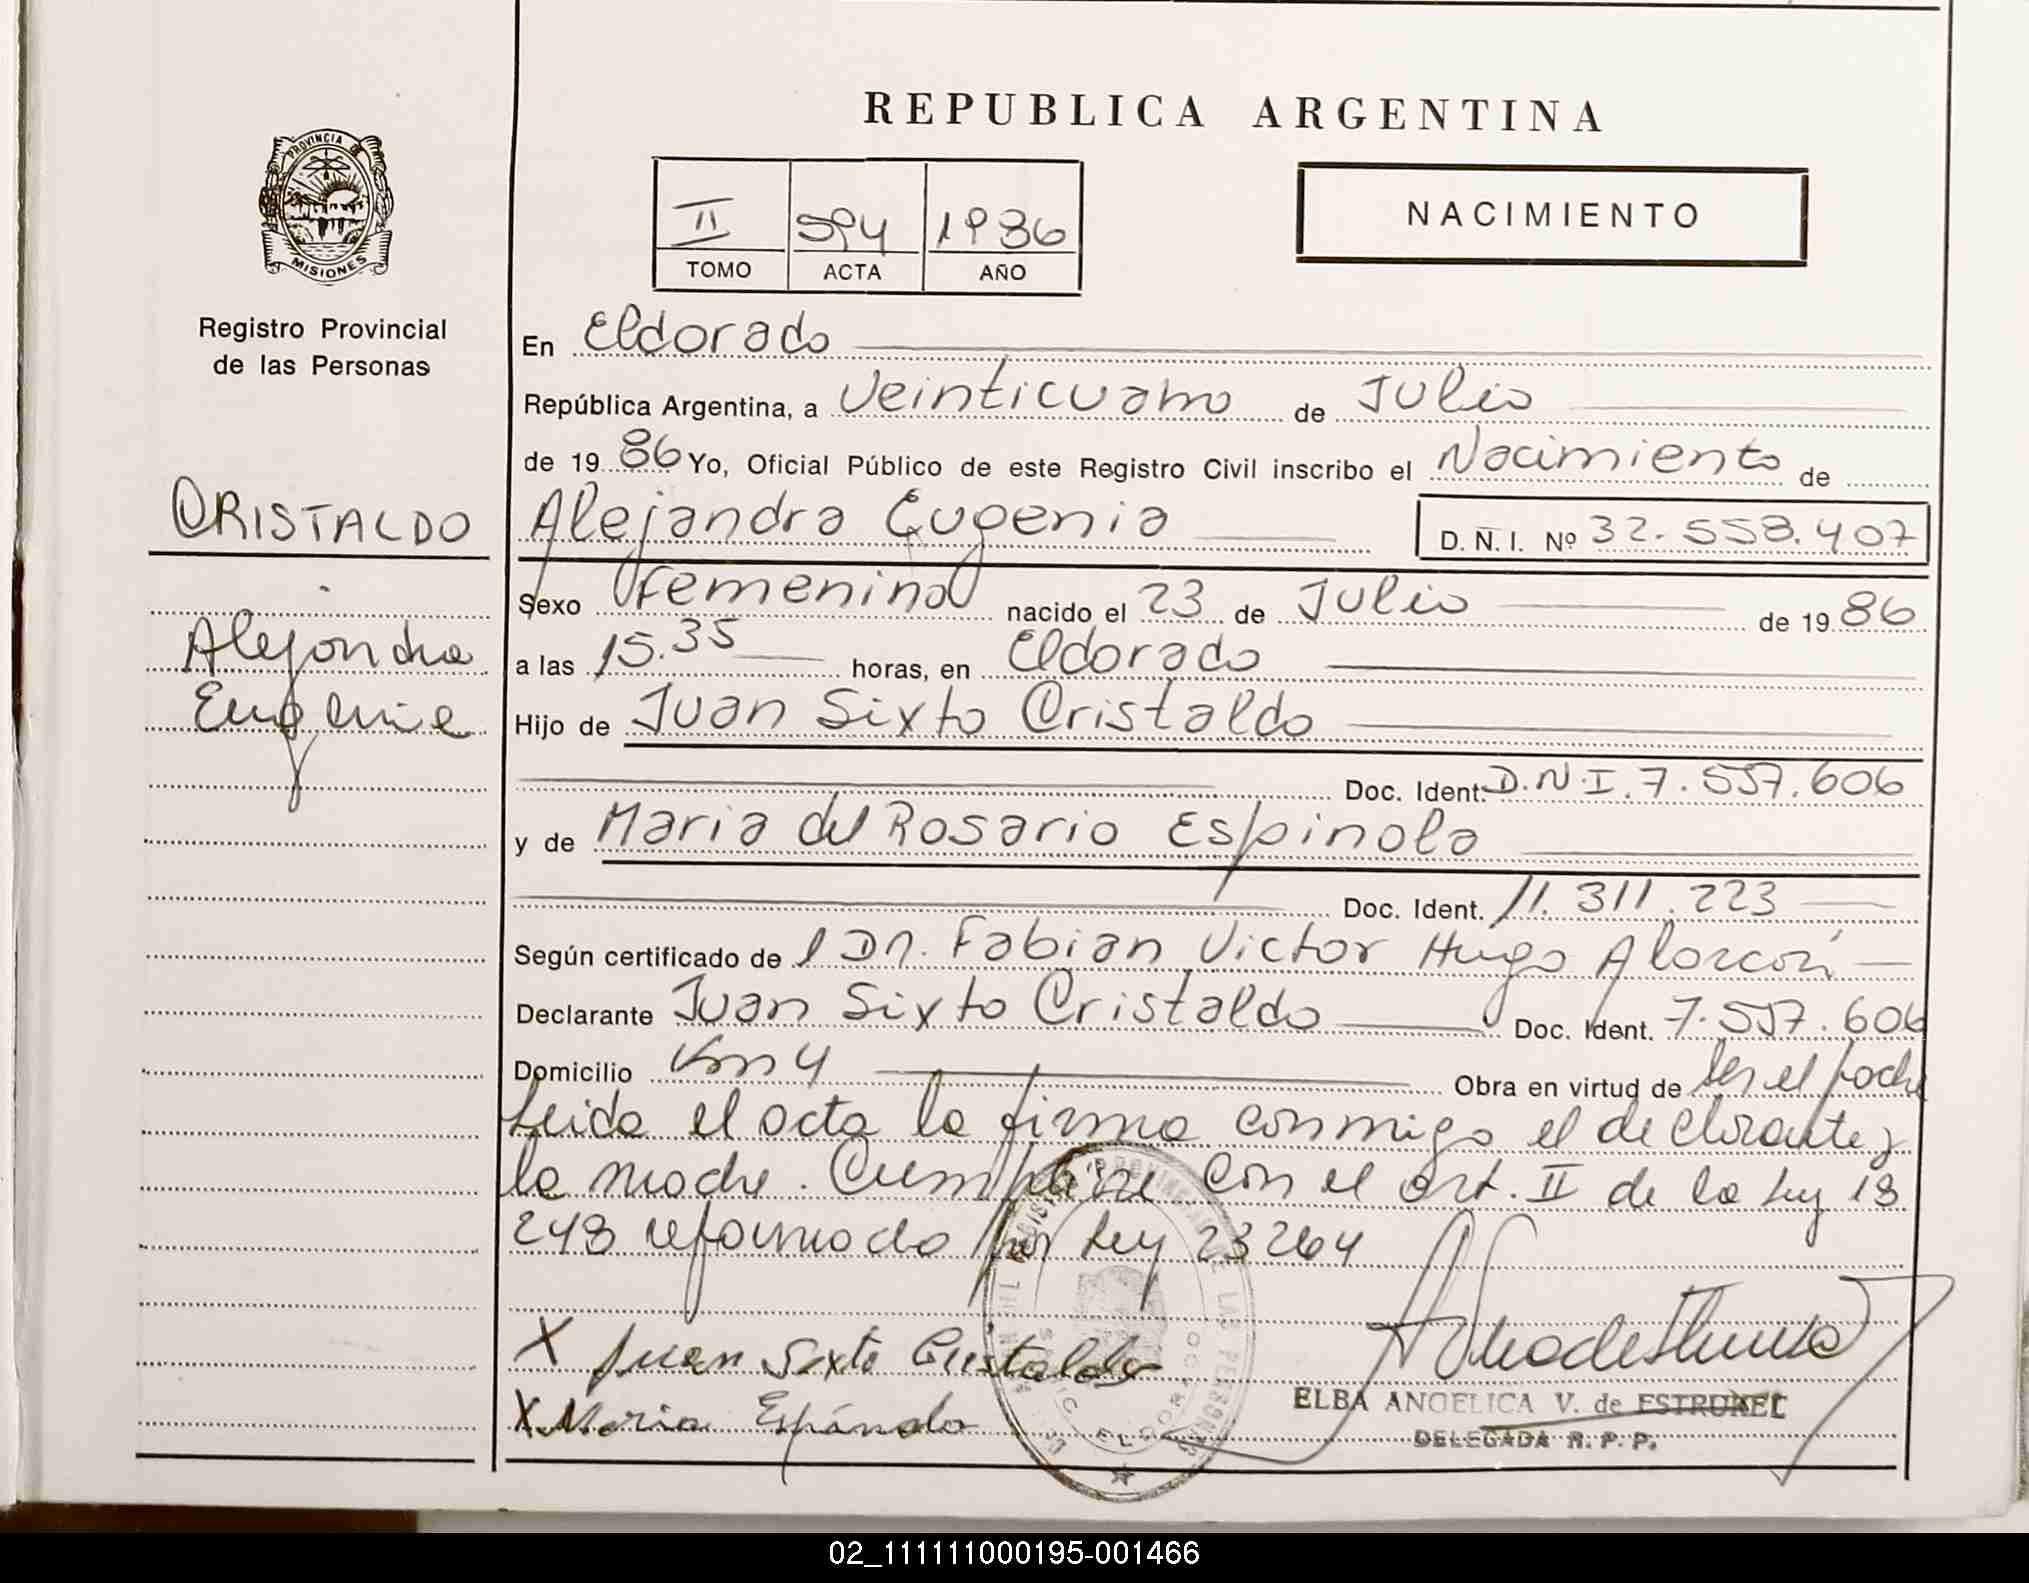 REPUBLICA ARGENTINA
PROVINCIA DE
MISIONES
Registro Provincial
de las Personas
II 594 1986
TOMO ACTA AÑO
NACIMIENTO
CRISTALDO
Alejandra
Eugenia
En Eldorado
República Argentina, a Veinticuatro de Julio
de 1986 Yo, Oficial Público de este Registro Civil inscribo el Nacimiento de
Alejandra Eugenia D. N. I. Nº 32.558.407
Sexo Femenino nacido el 23 de Julio de 1986
a las 15.35 horas, en Eldorado
Hijo de Juan Sixto Cristaldo
Doc. Ident. D.N.I. 7.557.606
y de Maria del Rosario Espinola
Doc. Ident. 11.311.223
Según certificado de l Dr. Fabian Victor Hugo Alarcón
Declarante Juan Sixto Cristaldo Doc. Ident. 7.557.606
Domicilio Km 4 Obra en virtud de ser el padre
Leida el acta la firma conmigo el declarante y
la madre. Cumplirse con el art. II de la Ley 18
248 reformado por Ley 23264
X Juan Sixto Cristaldo
X Maria Espínola
ELBA ANGELICA V. de ESTRUKEL
DELEGADA R. P. P.
02_111111000195-001466